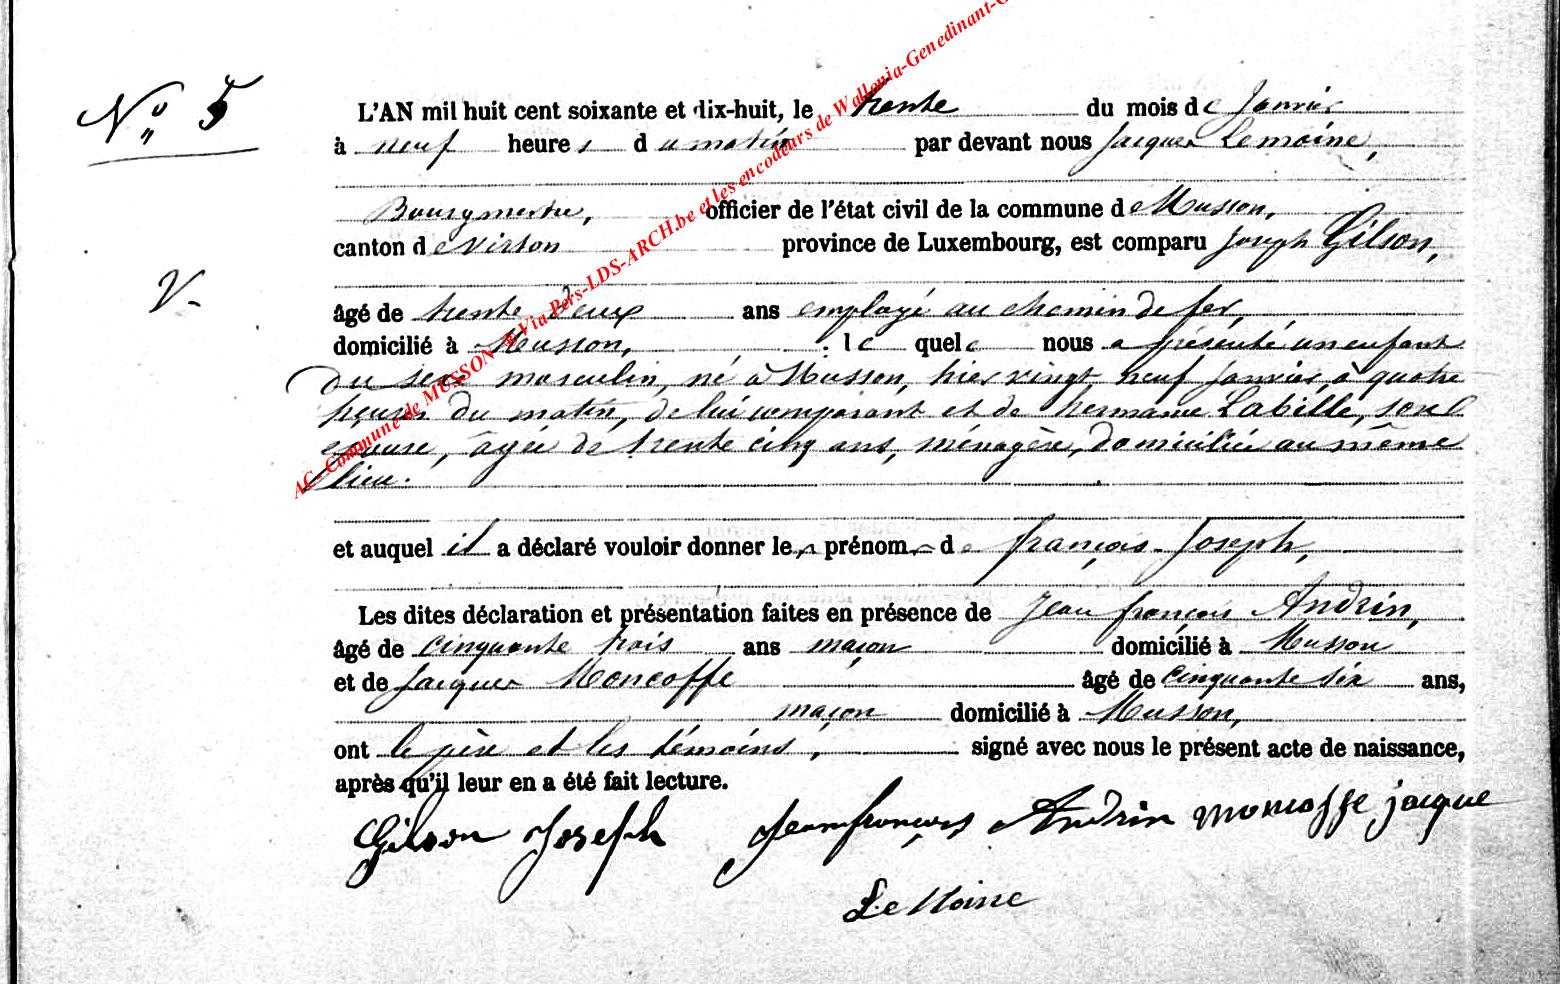 N° 5
L'AN mil huit cent soixante et dix-huit, le trente du mois de Janvier
à neuf heures du matin par devant nous Jacques Lemoine,
Bourgmestre, officier de l'état civil de la commune de Musson,
canton de Virton province de Luxembourg, est comparu Joseph Gilson,
V-
âgé de trente deux ans employé au chemin de fer,
domicilié à Musson, : lequel nous a présenté un enfant
du sexe masculin, né à Musson, hier vingt neuf Janvier, à quatre
heures du matin, de lui comparant et de hermance Labille, son
épouse, âgée de trente cinq ans, ménagère, domiciliée au même
lieu.
et auquel il a déclaré vouloir donner les prénoms de françois Joseph,
Les dites déclaration et présentation faites en présence de Jean françois Andrin,
âgé de cinquante trois ans maçon domicilié à Musson
et de Jacques Moncoffe âgé de cinquante six ans,
maçon domicilié à Musson,
ont le père et les témoins, signé avec nous le présent acte de naissance,
après qu'il leur en a été fait lecture.
Gilson Joseph Jeanfrançois Andrin moncoffe jacque
LeMoine
AC Commune de MUSSON Via Pers-LDS-ARCH.be et les encodeurs de Wallonia-Genedinant-G